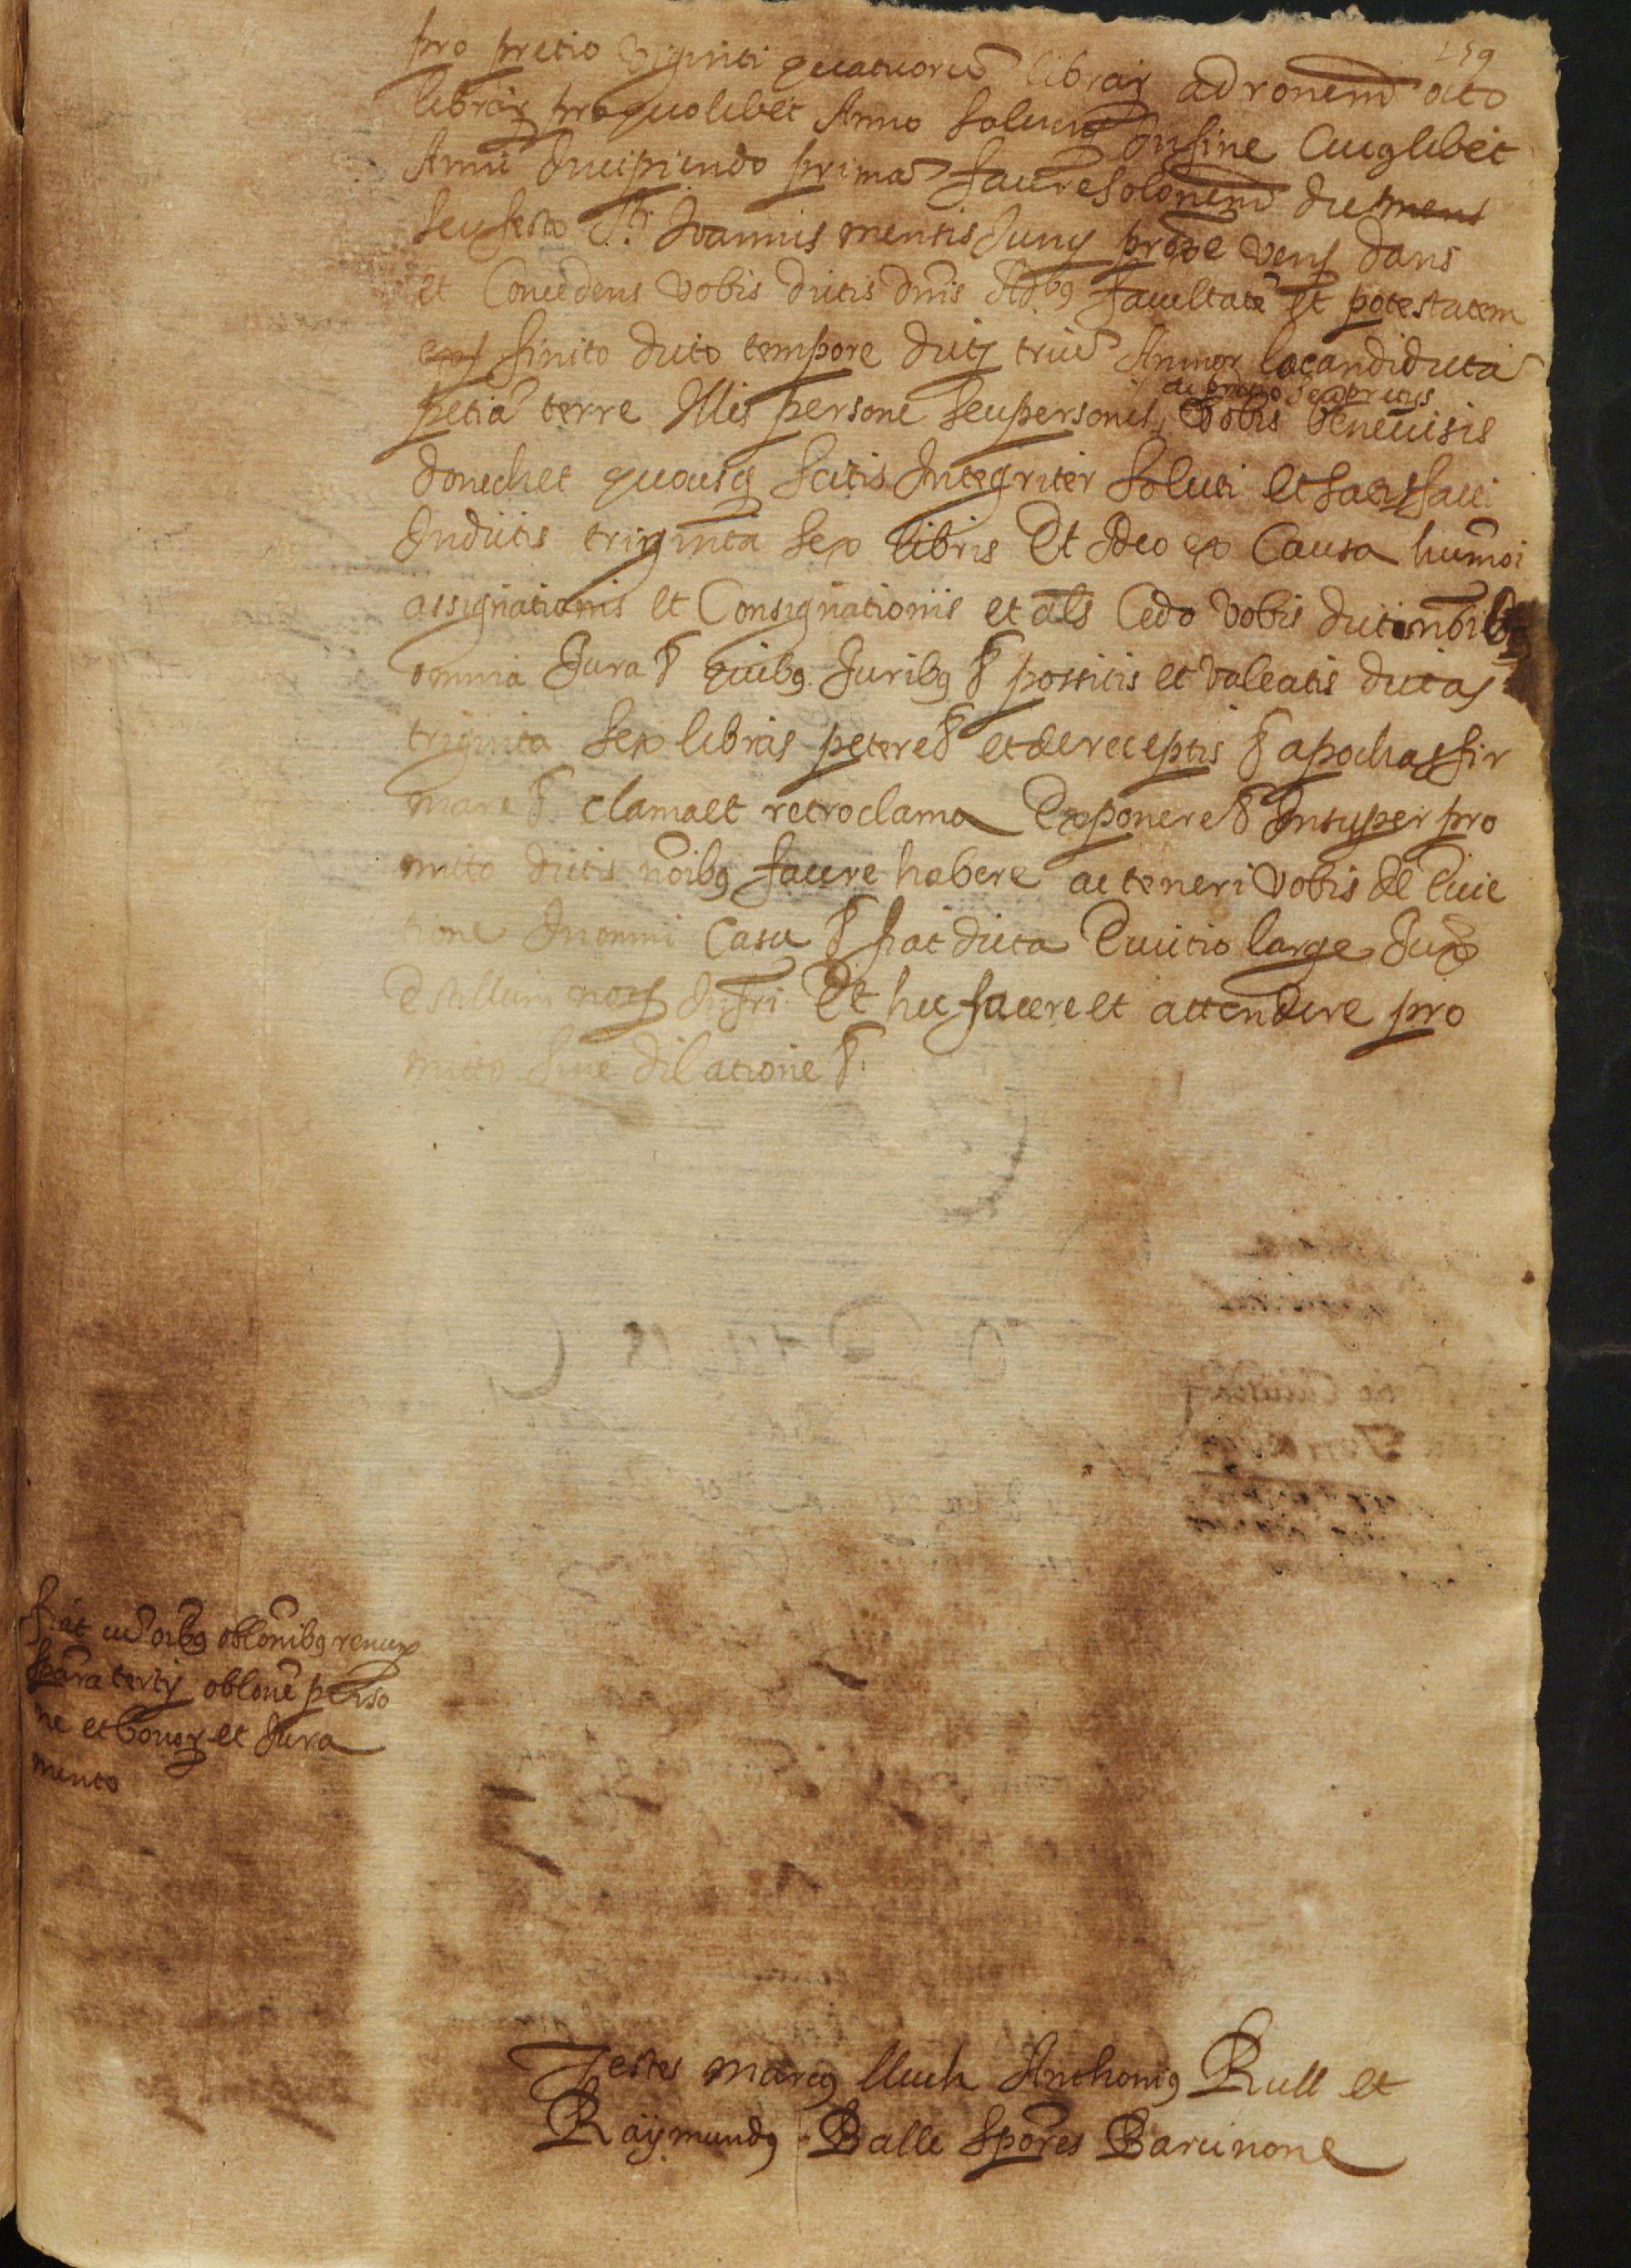 159
pro pretio viginti quatuor librar ad ronem octo
librar pro quolibet Anno solven in fine Cuiuslibet
Anni Incipiendo primã facere solonem die mens
seu festo Sti Joannis mensis Juny proxe ven dans
et Concedens vobis dictis dnis facultatẽ et potestatem
finito dicto tempore dict triũ Annor locandi dictã
petiã terre Illis persone seu personis vobis benevisis
donech et quousq sitis Integriter soluti et satisfacti
In dictis triginta sex libris Et Ideo ex Causa humoi
assignationis et Consignationis et als Cedo vobis dictis nõibq
omnia Jura & quibq Juribq & possitis et valeatis dictas
triginta sex libras petere & et de receptis & apochas fir
mare & clama et retroclama Exponere & Insuper pro
mitto dictis nõibq facere habere ac teneri vobis de Evic
tione In omni Casu & fiat dicta Evictio large Jux
Stillum not Infri Et hec facere et attendere pro
mitto sine dilatione &.
fiat cũ oibq oblonibq renun
tertij oblone perso
ne et bonor et Jura
mento
Testes marcq lluch Anthoniq Rull et
Raÿmundq Balle spores Barcinone